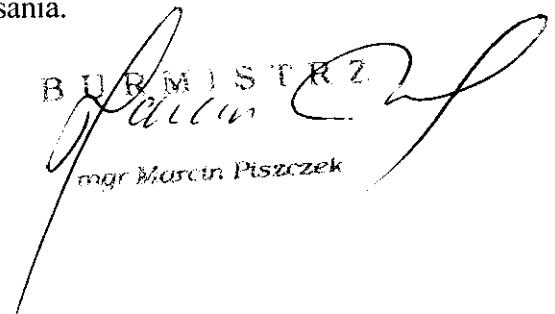 sania.
BURMISTRZ
Marcin
mgr Marcin Piszczek